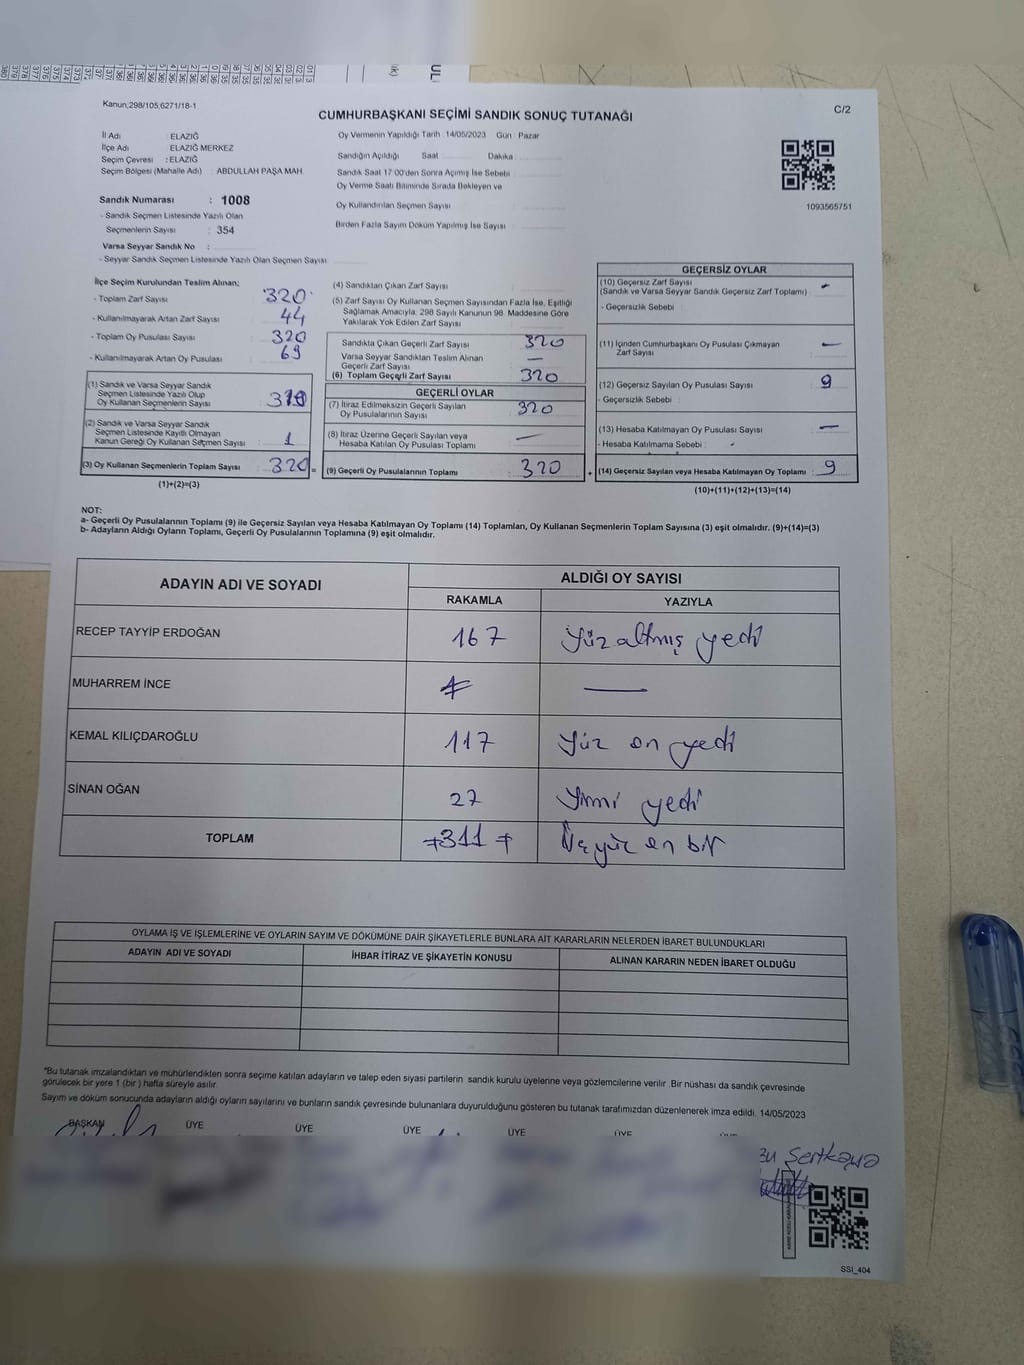 Kanun;298/105;6271/18-1
CUMHURBAŞKANI SEÇİMİ SANDIK SONUÇ TUTANAĞI
C/2
İl Adı : ELAZIĞ
İlçe Adı : ELAZIĞ MERKEZ
Seçim Çevresi : ELAZIĞ
Seçim Bölgesi (Mahalle Adı) : ABDULLAH PAŞA MAH.
Oy Vermenin Yapıldığı Tarih : 14/05/2023 Gün : Pazar
Sandığın Açıldığı Saat Dakika
Sandık Saat 17:00'den Sonra Açımış İse Sebebi
Oy Verme Saati Bitiminde Sırada Bekleyen ve
Oy Kullandırılan Seçmen Sayısı
Birden Fazla Sayım Döküm Yapılmış İse Sayısı
1093565751
Sandık Numarası : 1008
- Sandık Seçmen Listesinde Yazılı Olan
Seçmenlerin Sayısı : 354
Varsa Seyyar Sandık No :
- Seyyar Sandık Seçmen Listesinde Yazılı Olan Seçmen Sayısı:
İlçe Seçim Kurulundan Teslim Alınan;
- Toplam Zarf Sayısı 320
- Kullanılmayarak Artan Zarf Sayısı 44
- Toplam Oy Pusulası Sayısı 320
- Kullanılmayarak Artan Oy Pusulası 69
(1) Sandık ve Varsa Seyyar Sandık
Seçmen Listesinde Yazılı Olup
Oy Kullanan Seçmenlerin Sayısı
(2) Sandık ve Varsa Seyyar Sandık
Seçmen Listesinde Kayıtlı Olmayan
Kanun Gereği Oy Kullanan Seçmen Sayısı 1
(3) Oy Kullanan Seçmenlerin Toplam Sayısı 320 =
(1)+(2)=(3)
(4) Sandıktan Çıkan Zarf Sayısı
(5) Zarf Sayısı Oy Kullanan Seçmen Sayısından Fazla İse, Eşitliği
Sağlamak Amacıyla; 298 Sayılı Kanunun 98. Maddesine Göre
Yakılarak Yok Edilen Zarf Sayısı
Sandıkta Çıkan Geçerli Zarf Sayısı 320
Varsa Seyyar Sandıktan Teslim Alınan
Geçerli Zarf Sayısı —
(6) Toplam Geçerli Zarf Sayısı 320
GEÇERLİ OYLAR
(7) İtiraz Edilmeksizin Geçerli Sayılan
Oy Pusulalarının Sayısı 320
(8) İtiraz Üzerine Geçerli Sayılan veya
Hesaba Katılan Oy Pusulası Toplamı —
(9) Geçerli Oy Pusulalarının Toplamı 320 +
GEÇERSİZ OYLAR
(10) Geçersiz Zarf Sayısı
(Sandık ve Varsa Seyyar Sandık Geçersiz Zarf Toplamı) -
- Geçersizlik Sebebi
(11) İçinden Cumhurbaşkanı Oy Pusulası Çıkmayan
Zarf Sayısı —
(12) Geçersiz Sayılan Oy Pusulası Sayısı 9
- Geçersizlik Sebebi
(13) Hesaba Katılmayan Oy Pusulası Sayısı —
- Hesaba Katılmama Sebebi : -
(14) Geçersiz Sayılan veya Hesaba Katılmayan Oy Toplamı 9
(10)+(11)+(12)+(13)=(14)
NOT:
a- Geçerli Oy Pusulalarının Toplamı (9) ile Geçersiz Sayılan veya Hesaba Katılmayan Oy Toplamı (14) Toplamları, Oy Kullanan Seçmenlerin Toplam Sayısına (3) eşit olmalıdır. (9)+(14)=(3)
b- Adayların Aldığı Oyların Toplamı, Geçerli Oy Pusulalarının Toplamına (9) eşit olmalıdır.
ADAYIN ADI VE SOYADI
ALDIĞI OY SAYISI
RAKAMLA YAZIYLA
RECEP TAYYİP ERDOĞAN 167 Yüz altmış yedi
MUHARREM İNCE —
KEMAL KILIÇDAROĞLU 117 Yüz on yedi
SİNAN OĞAN 27 Yirmi yedi
TOPLAM 311 Üçyüz on bir
OYLAMA İŞ VE İŞLEMLERİNE VE OYLARIN SAYIM VE DÖKÜMÜNE DAİR ŞİKAYETLERLE BUNLARA AİT KARARLARIN NELERDEN İBARET BULUNDUKLARI
ADAYIN ADI VE SOYADI İHBAR İTİRAZ VE ŞİKAYETİN KONUSU ALINAN KARARIN NEDEN İBARET OLDUĞU
*Bu tutanak imzalandıktan ve mühürlendikten sonra seçime katılan adayların ve talep eden siyasi partilerin sandık kurulu üyelerine veya gözlemcilerine verilir. Bir nüshası da sandık çevresinde
görülecek bir yere 1 (bir) hafta süreyle asılır.
Sayım ve döküm sonucunda adayların aldığı oyların sayılarını ve bunların sandık çevresinde bulunanlara duyurulduğunu gösteren bu tutanak tarafımızdan düzenlenerek imza edildi. 14/05/2023
BAŞKAN ÜYE ÜYE ÜYE ÜYE ÜYE
Sertkaya
SSI_404